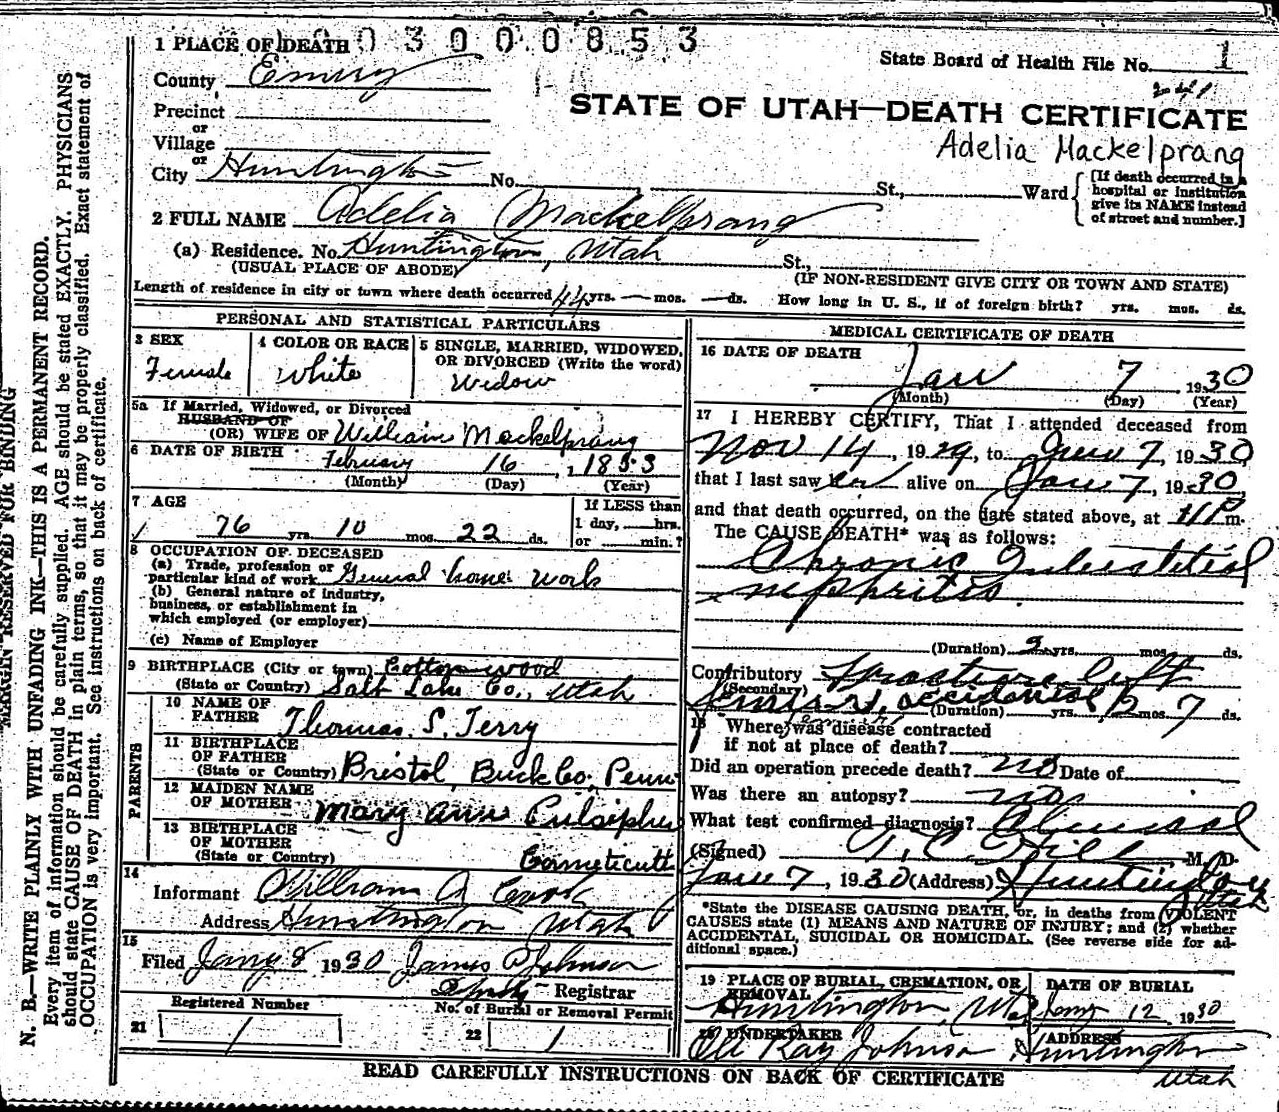 1 PLACE OF DEATH 1 0 0 3 0 0 0 8 5 3
State Board of Health File No. 1
County Emery
STATE OF UTAH—DEATH CERTIFICATE
Adelia Mackelprang
Precinct
or
Village
or
City Huntington No. St., Ward
[If death occurred in a hospital or institution give its NAME instead of street and number.]
2 FULL NAME Adelia Mackelprang
(a) Residence. No. Huntington, Utah St.,
(USUAL PLACE OF ABODE) (IF NON-RESIDENT GIVE CITY OR TOWN AND STATE)
Length of residence in city or town where death occurred 44 yrs. — mos. — ds. How long in U. S., if of foreign birth? yrs. mos. ds.
PERSONAL AND STATISTICAL PARTICULARS
3 SEX Female
4 COLOR OR RACE White
5 SINGLE, MARRIED, WIDOWED, OR DIVORCED (Write the word) Widow
5a If Married, Widowed, or Divorced
HUSBAND OF
(OR) WIFE OF William Mackelprang
6 DATE OF BIRTH February 16, 1853
(Month) (Day) (Year)
7 AGE
76 yrs. 10 mos. 22 ds.
If LESS than
1 day, hrs.
or min.?
8 OCCUPATION OF DECEASED
(a) Trade, profession or
particular kind of work General home work
(b) General nature of industry,
business, or establishment in
which employed (or employer)
(c) Name of Employer
9 BIRTHPLACE (City or town) Cottonwood
(State or Country) Salt Lake Co., Utah
PARENTS
10 NAME OF FATHER Thomas S. Terry
11 BIRTHPLACE OF FATHER
(State or Country) Bristol, Buck Co, Penn
12 MAIDEN NAME OF MOTHER Mary Ann Pulsipher
13 BIRTHPLACE OF MOTHER
(State or Country) Conneticutt
14
Informant William A Cook
Address Huntington Utah
15
Filed Jany 8 1930 James P Johnson
Deputy Registrar
Registered Number No. of Burial or Removal Permit
21 1 22 1
MEDICAL CERTIFICATE OF DEATH
16 DATE OF DEATH
Jan 7 1930
(Month) (Day) (Year)
17 I HEREBY CERTIFY, That I attended deceased from
Nov 14, 1929, to Jan 7, 1930,
that I last saw her alive on Jan 7, 1930,
and that death occurred, on the date stated above, at 11 P m.
The CAUSE DEATH* was as follows:
Chronic Interstitial
nephritis.
(Duration) yrs. mos. ds.
Contributory Fracture left
(Secondary)
accidental (Duration) yrs. 2 mos. 7 ds.
18 Where was disease contracted
if not at place of death?
Did an operation precede death? no Date of
Was there an autopsy? no
What test confirmed diagnosis? Clinical
(Signed) T. C. Hill, M. D.
Jan 7, 1930 (Address) Huntington
Utah
*State the DISEASE CAUSING DEATH, or, in deaths from VIOLENT
CAUSES state (1) MEANS AND NATURE OF INJURY; and (2) whether
ACCIDENTAL, SUICIDAL OR HOMICIDAL. (See reverse side for ad-
ditional space.)
19 PLACE OF BURIAL, CREMATION, OR REMOVAL DATE OF BURIAL
Huntington, Utah Jany 12 1930
20 UNDERTAKER ADDRESS
Ray Johnson Huntington
Utah
READ CAREFULLY INSTRUCTIONS ON BACK OF CERTIFICATE
MARGIN RESERVED FOR BINDING
N. B.—WRITE PLAINLY WITH UNFADING INK—THIS IS A PERMANENT RECORD.
Every item of information should be carefully supplied. AGE should be stated EXACTLY. PHYSICIANS
should state CAUSE OF DEATH in plain terms, so that it may be properly classified. Exact statement of
OCCUPATION is very important. See instructions on back of certificate.